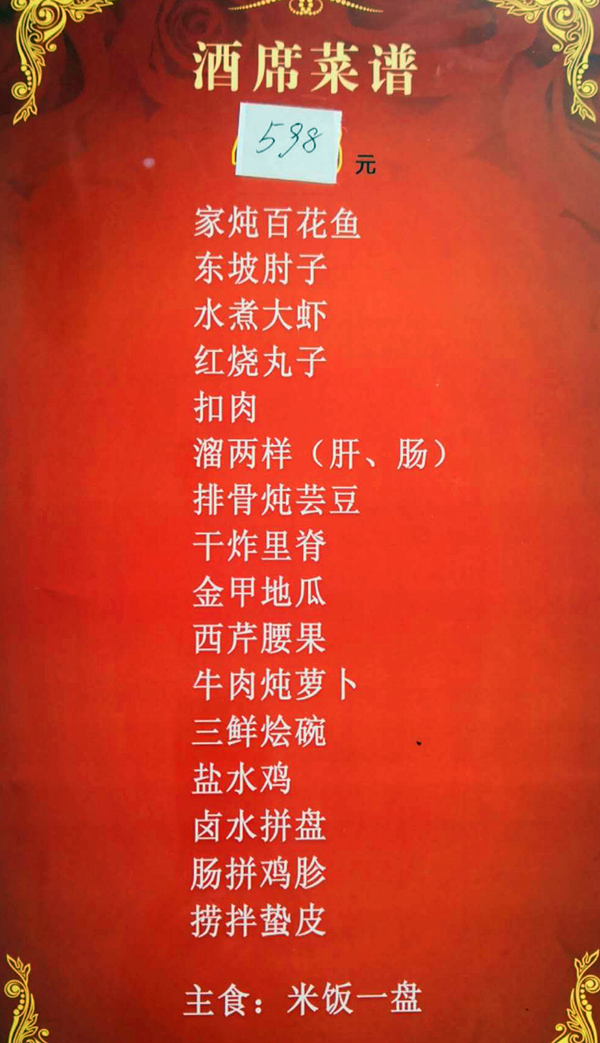 酒席菜谱
598 元
家炖百花鱼
东坡肘子
水煮大虾
红烧丸子
扣肉
溜两样（肝、肠）
排骨炖芸豆
干炸里脊
金甲地瓜
西芹腰果
牛肉炖萝卜
三鲜烩碗
盐水鸡
卤水拼盘
肠拼鸡胗
捞拌蛰皮
主食：米饭一盘